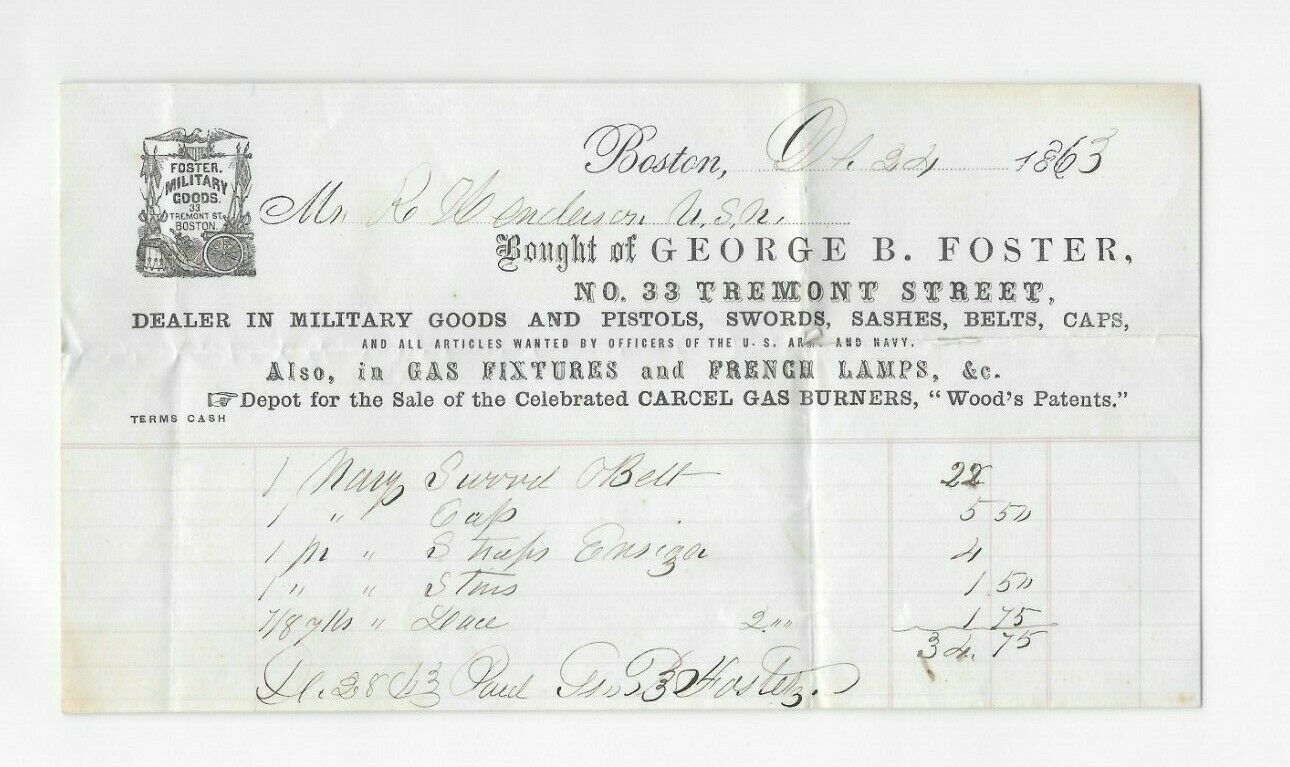 FOSTER.
MILITARY
GOODS.
33
TREMONT ST.
BOSTON.
Boston, 24 1863
Mr. R Henderson U.S.N.
Bought of GEORGE B. FOSTER,
NO. 33 TREMONT STREET,
DEALER IN MILITARY GOODS AND PISTOLS, SWORDS, SASHES, BELTS, CAPS,
AND ALL ARTICLES WANTED BY OFFICERS OF THE U. S. ARMY AND NAVY.
Also, in GAS FIXTURES and FRENCH LAMPS, &c.
☞ Depot for the Sale of the Celebrated CARCEL GAS BURNERS, "Wood's Patents."
TERMS CASH
1 Navy Sword Belt 22
1 " Cap 5 50
1 pr " Straps Ensign 4
1 " " 1 50
7/8 yds " Lace 2 "" 1 75
34. 75
28 63 Paid Geo B Foster